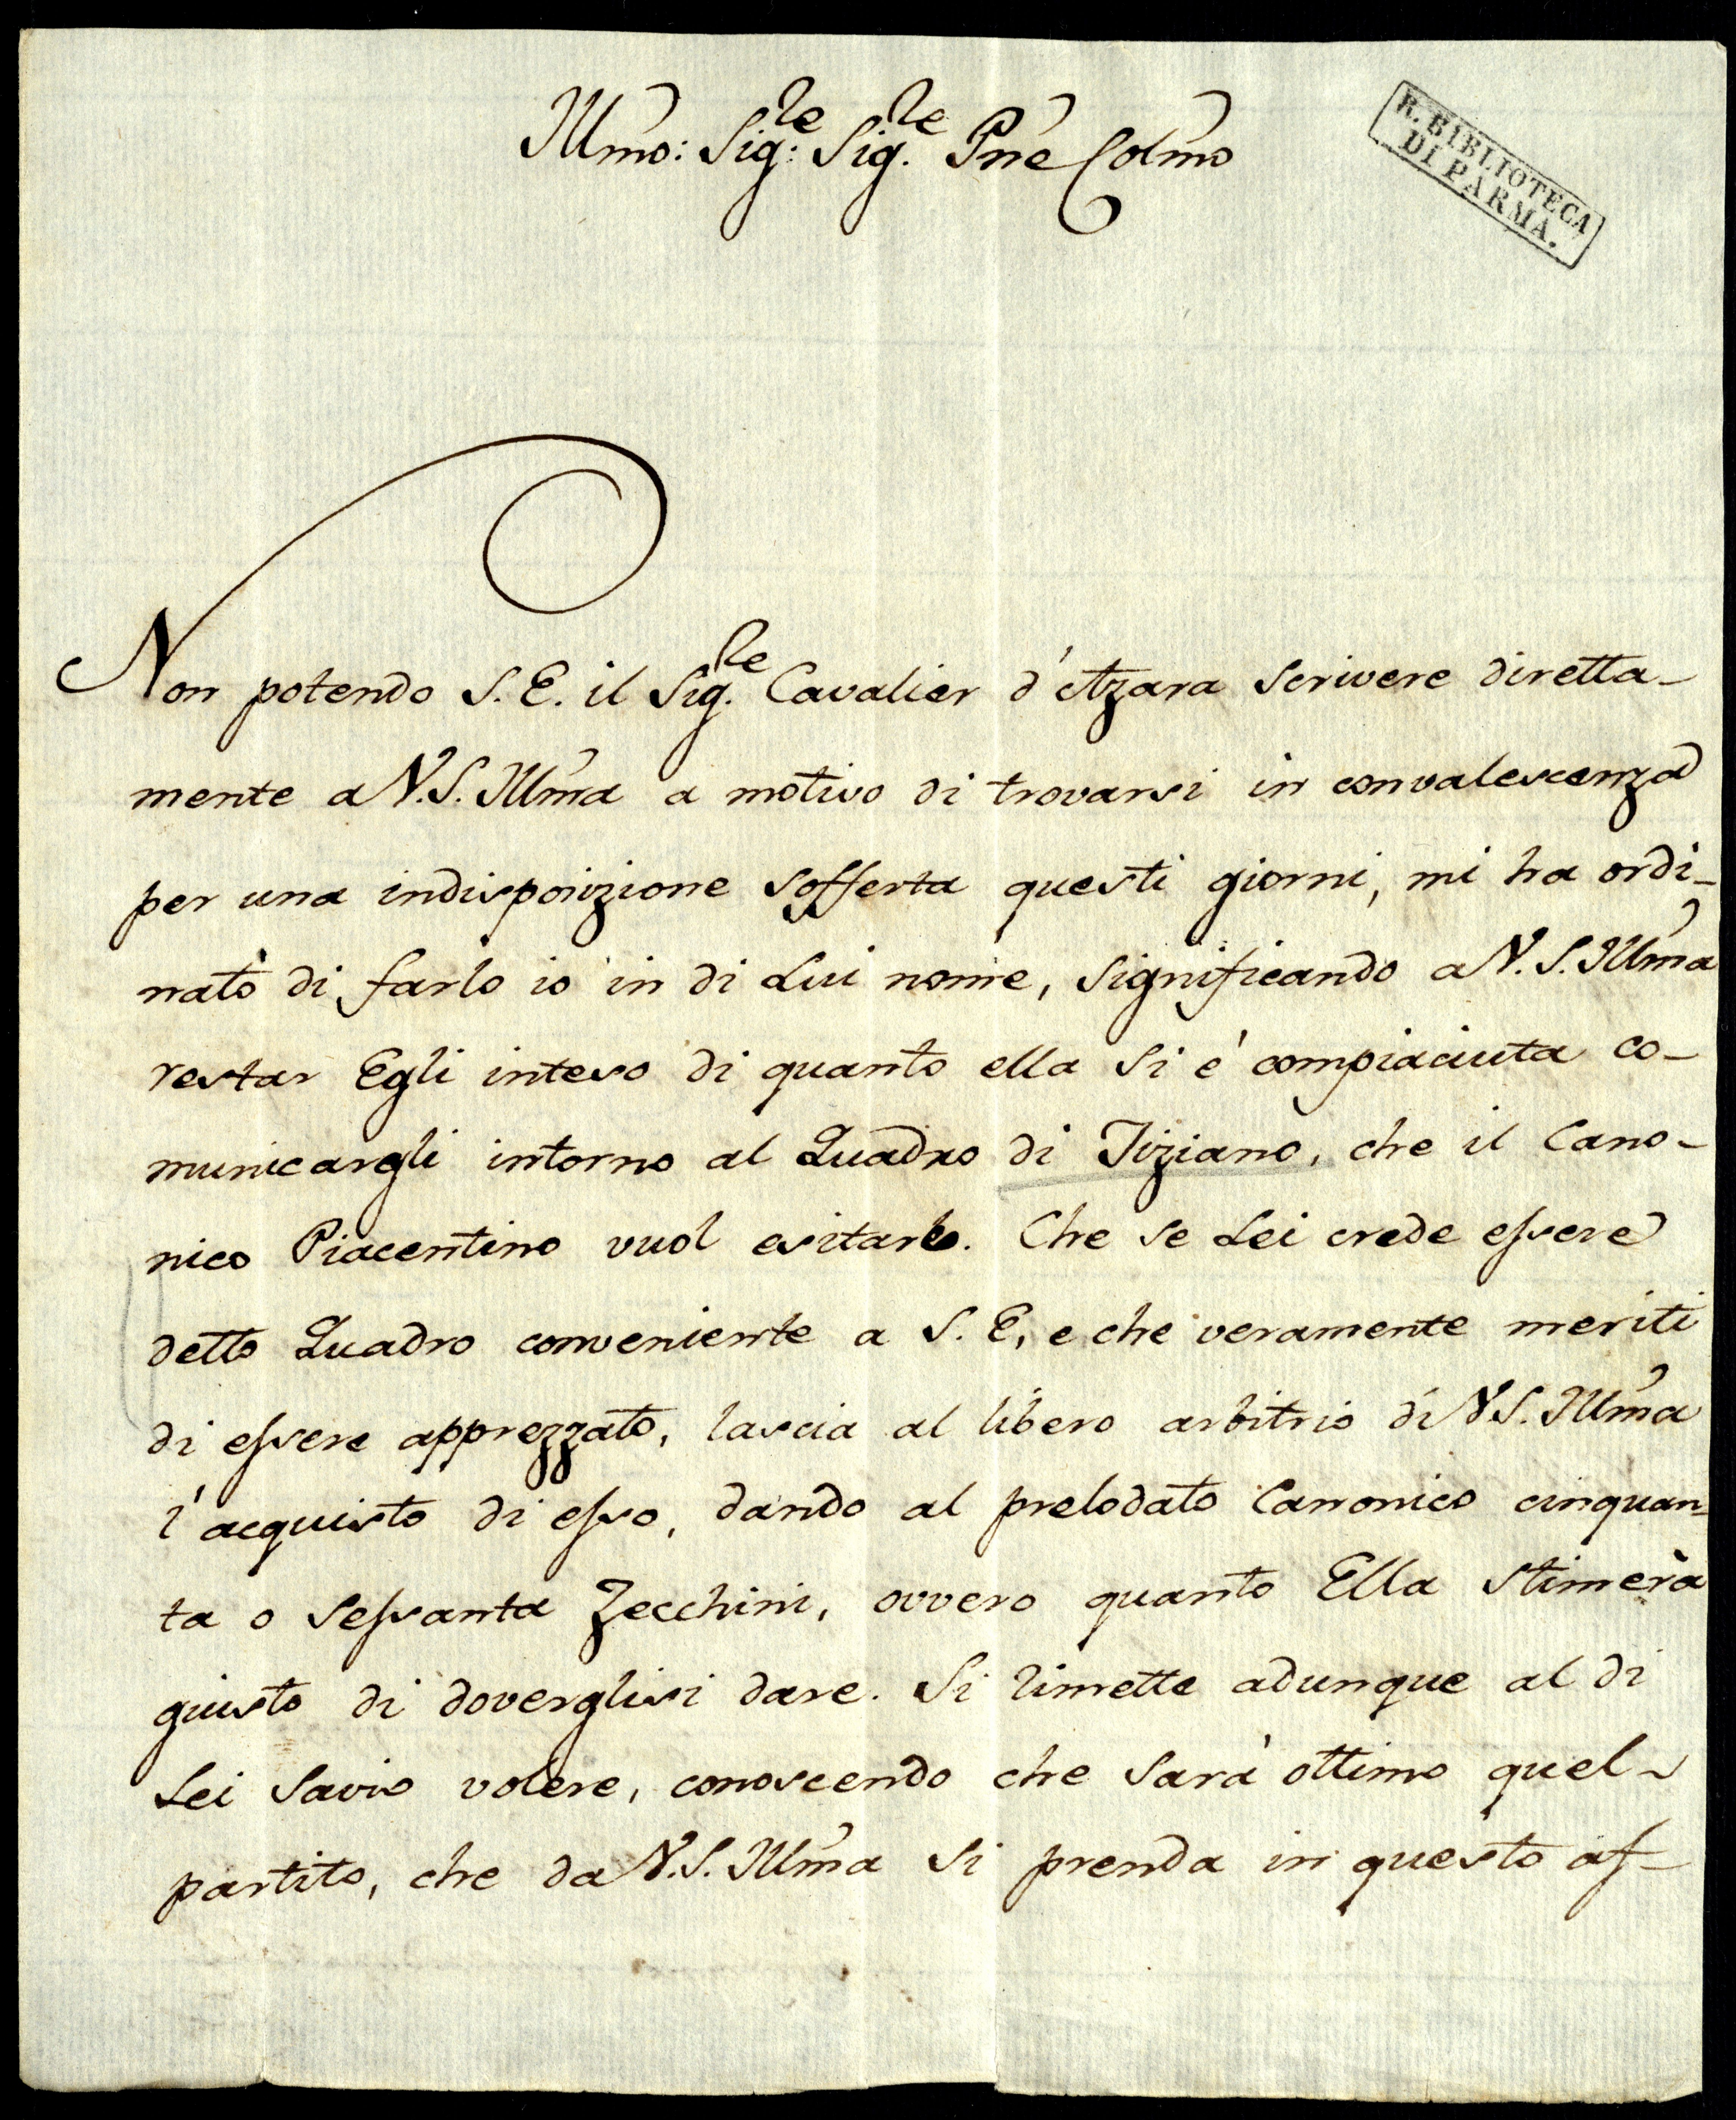 Illmo: Sig:re Sig.re Pne Colmo
R. BIBLIOTECA
DI PARMA.
Non potendo S. E. il Sig.re Cavalier d'Azara scrivere diretta-
mente a V. S. Illma a motivo di trovarsi in convalescenza
per una indisposizione sofferta questi giorni, mi ha ordi-
nato di farlo io in di Lui nome, significando a V. S. Illma
restar Egli inteso di quanto ella si è compiaciuta co-
municargli intorno al Quadro di Tiziano, che il Cano-
nico Piacentino vuol esitarlo. Che se Lei crede essere
detto Quadro conveniente a S. E, e che veramente meriti
di essere apprezzato, lascia al libero arbitrio di V S. Illma
l'acquisto di esso, dando al prelodato Canonico cinquan-
ta o sessanta Zecchini, ovvero quanto Ella stimerà
giusto di doverglisi dare. Si rimette adunque al di
Lei savio volere, conoscendo che sarà ottimo quel-
partito, che da V. S. Illma si prenda in questo af-